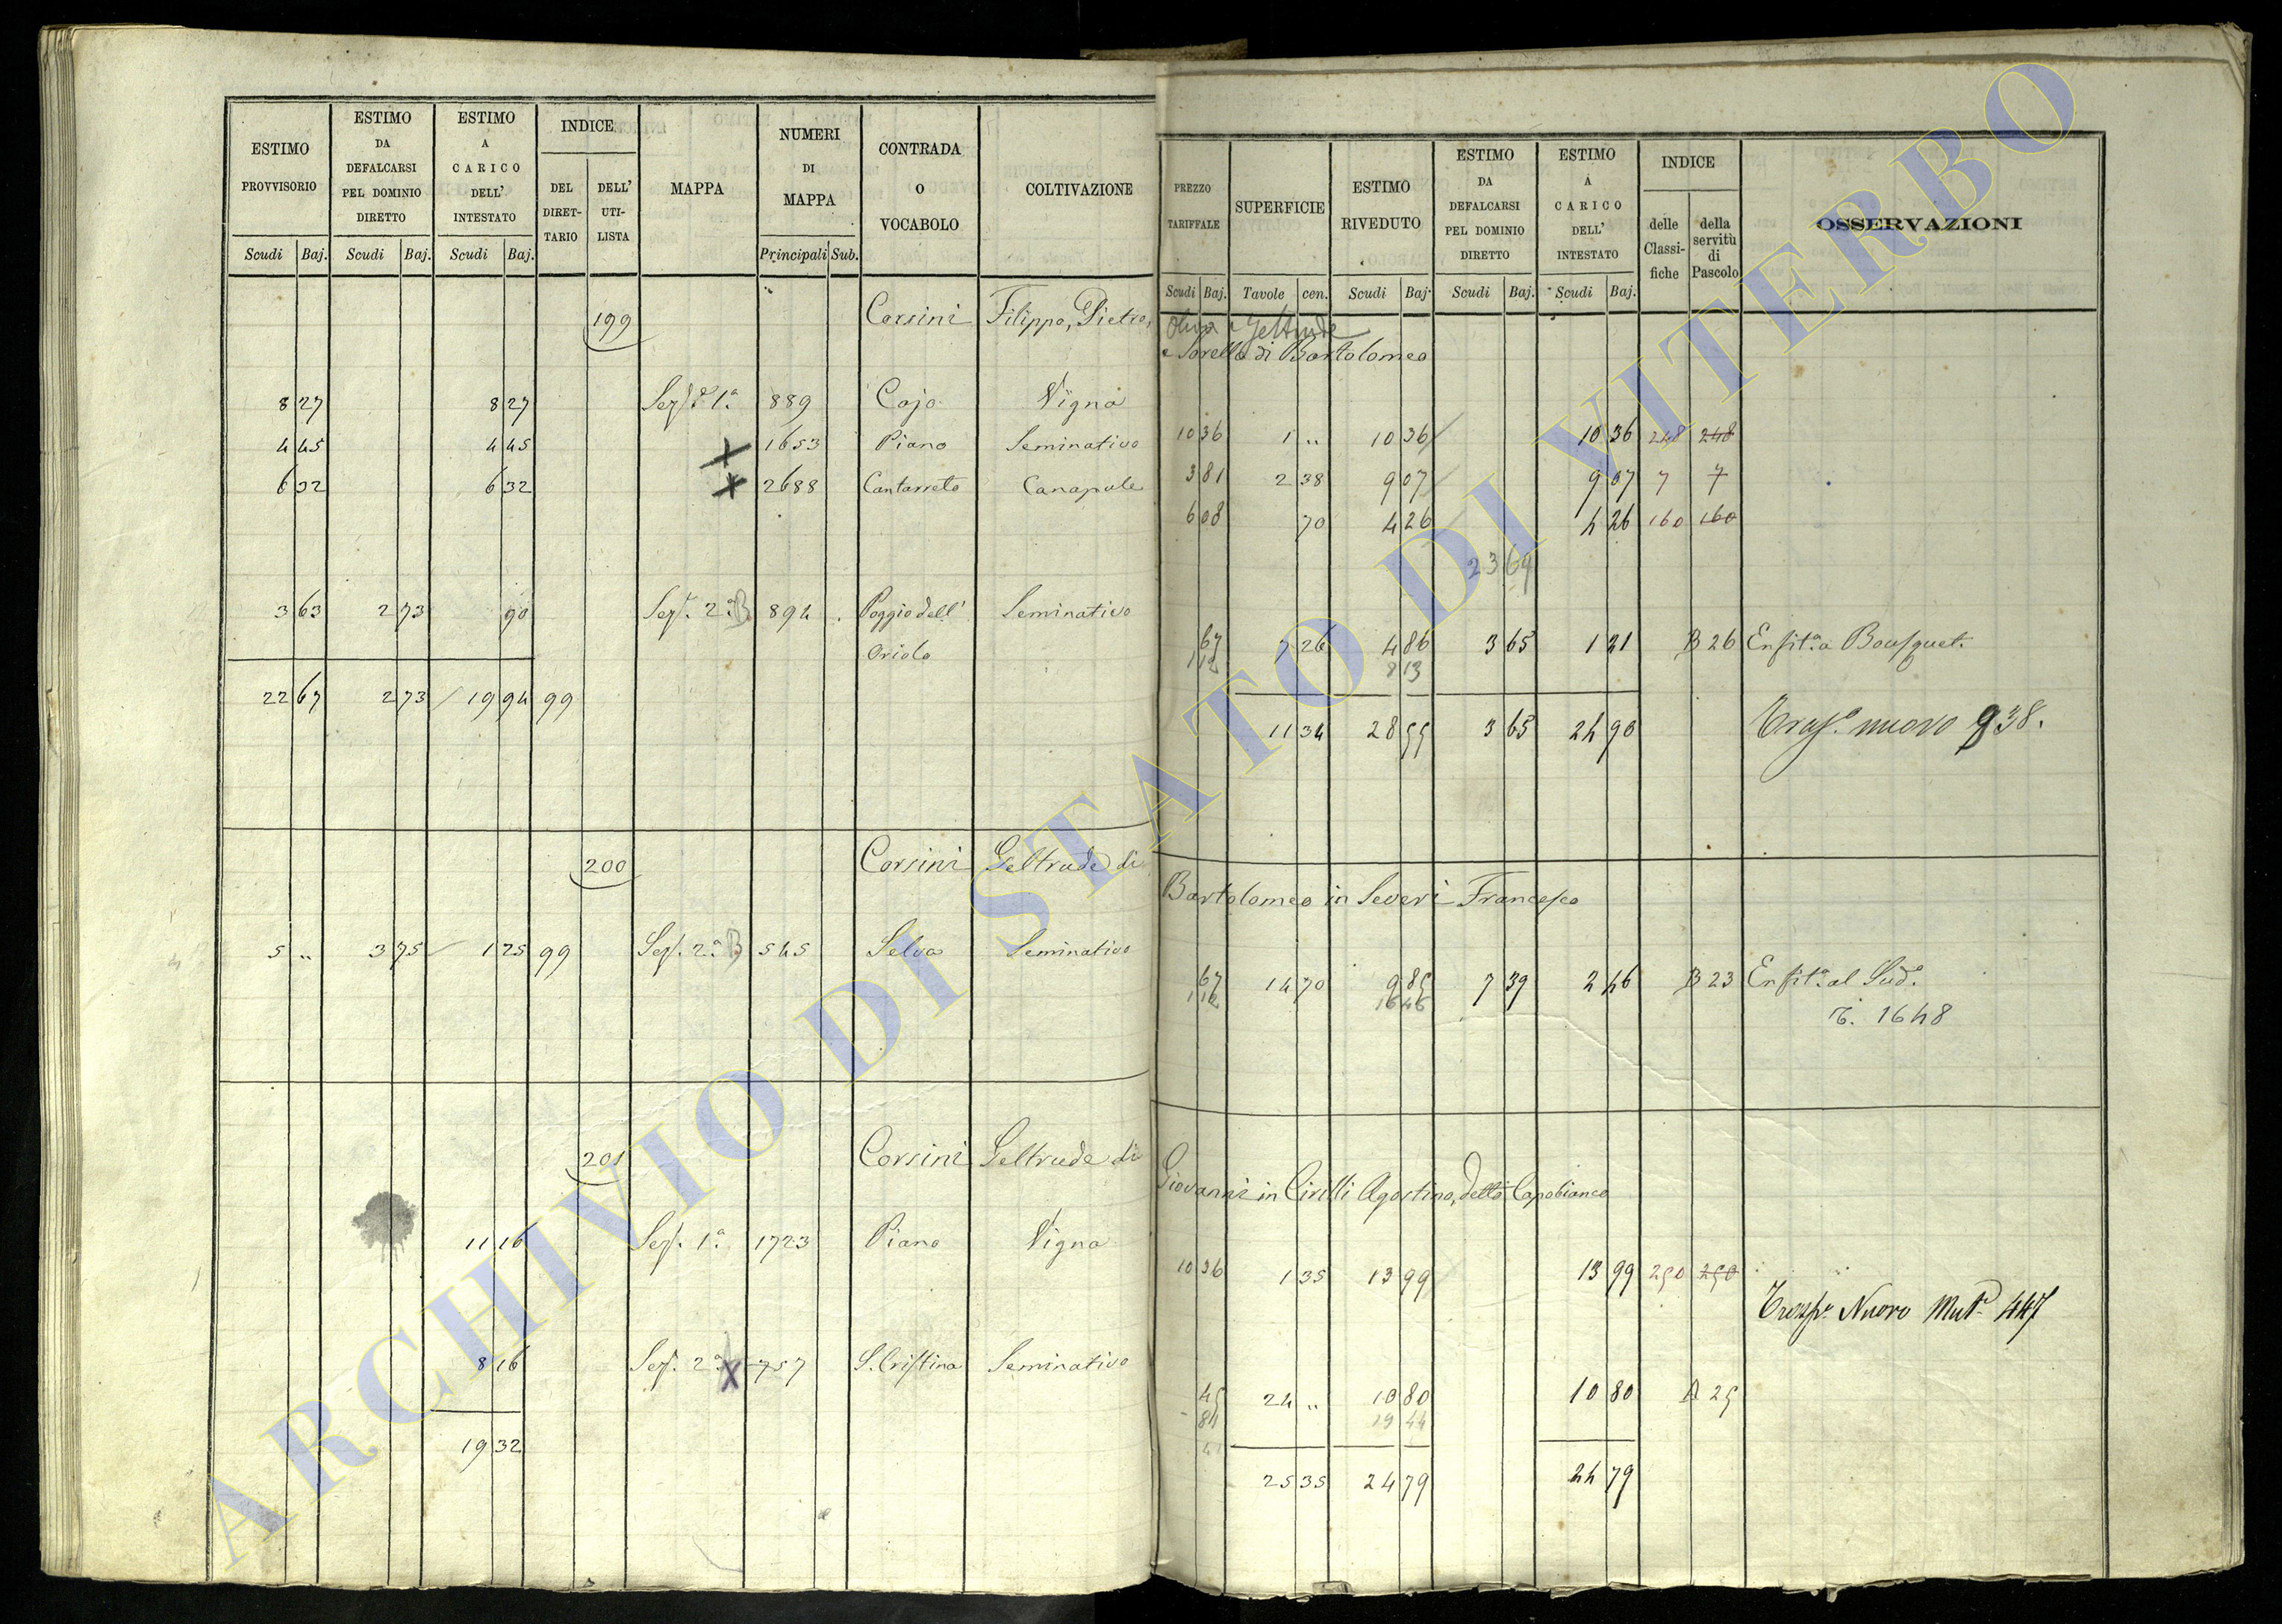 ESTIMO PROVVISORIO
ESTIMO DA DEFALCARSI PEL DOMINIO DIRETTO
ESTIMO A CARICO DELL' INTESTATO
INDICE
DEL DIRET-TARIO
DELL' UTI-LISTA
MAPPA
NUMERI DI MAPPA
CONTRADA O VOCABOLO
COLTIVAZIONE
Scudi Baj. Scudi Baj. Scudi Baj. Principali Sub.
PREZZO TARIFFALE
SUPERFICIE
ESTIMO RIVEDUTO
ESTIMO DA DEFALCARSI PEL DOMINIO DIRETTO
ESTIMO A CARICO DELL' INTESTATO
INDICE
delle Classi-fiche
della servitù di Pascolo
OSSERVAZIONI
Scudi Baj. Tavole cen. Scudi Baj. Scudi Baj. Scudi Baj.
199 Corsini Filippo, Pietro, Oliva e Geltrude
e Sorella di Bartolomeo
8 27 8 27 Sez. 1a. 889 Cajo Vigna 10 36 1 „ 10 36 10 36 248 248
4 45 4 45 X 1653 Piano Seminativo 3 81 2 38 9 07 9 07 7 7
6 32 6 32 X 2688 Cantarreto Canapule 6 08 70 4 26 4 26 160 160
23 69
3 63 2 73 90 Sez. 2a. B 894 Poggio dell' Seminativo 67 7 26 4 86 3 65 1 21 B 26 Enfit.a a Bousquet.
Oriolo 1 12 8 13
22 67 2 73 19 94 99 11 34 28 55 3 65 24 90 Trasp. nuovo 938.
200 Corsini Geltrude di
Bartolomeo in Severi Francesco
5 „ 3 75 1 25 99 Sez. 2a. B 545 Selva Seminativo 67 14 70 9 85 7 39 2 46 B 23 Enfit.a al Sud.o
1 12 16 46 T. 1648
201 Corsini Geltrude di
Giovanni in Civilli Agostino, detto Capobianco
11 16 Sez. 1a. 1723 Piano Vigna 10 36 1 35 13 99 13 99 250 250
Trasp. Nuovo Mut. 447
8 16 Sez. 2a X 757 S. Cristina Seminativo 45 24 „ 10 80 10 80 A 25
81 19 44
19 32 25 35 24 79 24 79
ARCHIVIO DI STATO DI VITERBO